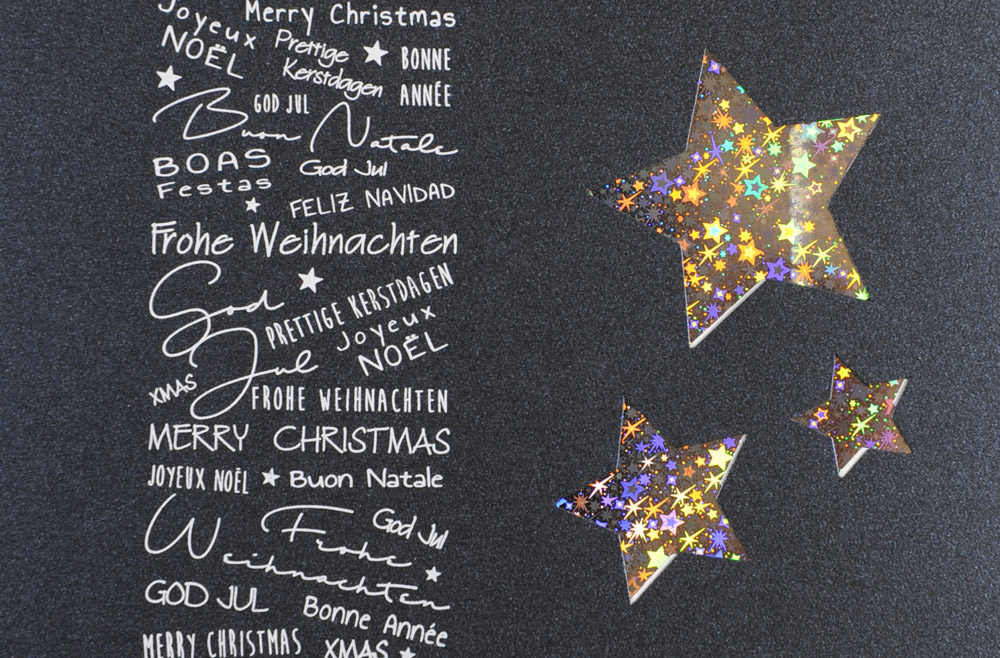 Merry Christmas
Joyeux
NOËL
Prettige
Kerstdagen
BONNE
ANNÉE
GOD JUL
Buon Natale
BOAS
Festas
God Jul
FELIZ NAVIDAD
Frohe Weihnachten
God
Jul
PRETTIGE KERSTDAGEN
Joyeux
NOËL
XMAS
FROHE WEIHNACHTEN
MERRY CHRISTMAS
JOYEUX NOËL
Buon Natale
God Jul
Frohe
Weihnachten
GOD JUL
Bonne Année
MERRY CHRISTMAS
XMAS